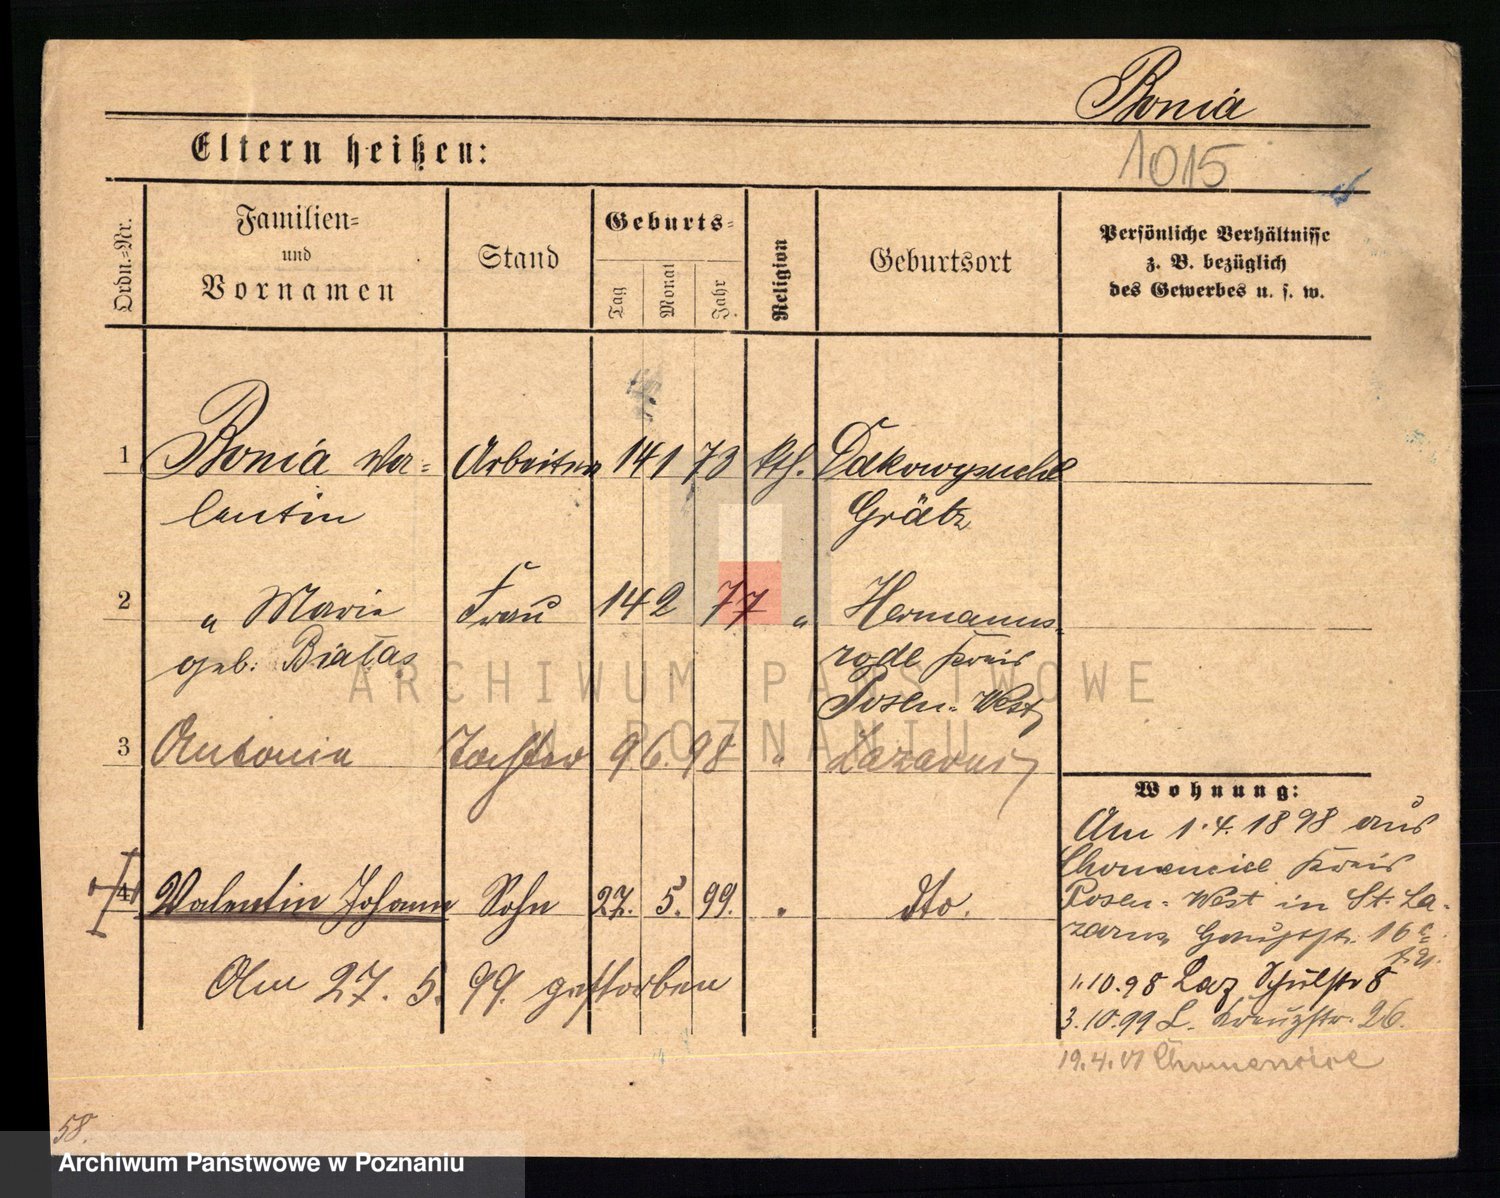 Bonia
Eltern heißen:
1015
Ordn.-Nr.
Familien-
und
Vornamen
Stand
Geburts-
Tag
Monat
Jahr
Religion
Geburtsort
Persönliche Verhältnisse
z. B. bezüglich
des Gewerbes u. s. w.
1 Bonia Va- Arbeiter 14 1 73 kth.
lentin Grätz
2 " Marie Frau 14 2 77 " Hermanns-
geb. Białas rode Kreis
Posen-West
3 Antonia Tochter 9 6 98 " Lazarus
4 Valentin Johann Sohn 27. 5. 99. " dto.
Am 27. 5. 99. gestorben
Wohnung:
Am 1.4.1898 aus
Kreis
Posen-West in St. La-
zarus Hauptstr. 16
1.10.98 Laz Schulstr 8
3.10.99 L. Kreuzstr. 26.
19.4.01 Chomencice
58.
ARCHIWUM PAŃSTWOWE
W POZNANIU
Archiwum Państwowe w Poznaniu